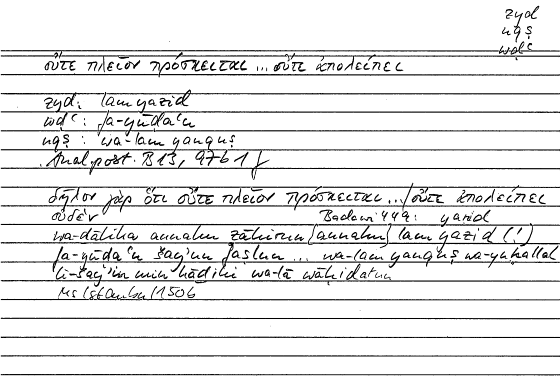 zyd
nqṣ
wḍʿ
οὔτε πλεῖον πρόσκειται ... οὔτε ἀπολείπει
zyd: lam yazid
wḍʿ: fa-yūḍaʿu
nqṣ: wa-lam yanquṣ
Anal. post. B 13, 97b 1 f
δῆλον γὰρ ὅτι οὔτε πλεῖον πρόσκειται .../οὔτε ἀπολείπει
οὐδέν Badawi 449: yazid
wa-ḏālika annahu ẓāhirun {annahu} lam yazid (!)
fa-yūḍaʿu šayʾun faṣlun ... wa-lam yanquṣ wa-yuḫallal
li-šayʾin min hāḏihi wa-lā wāḥidatun
Ms Istanbul 1506